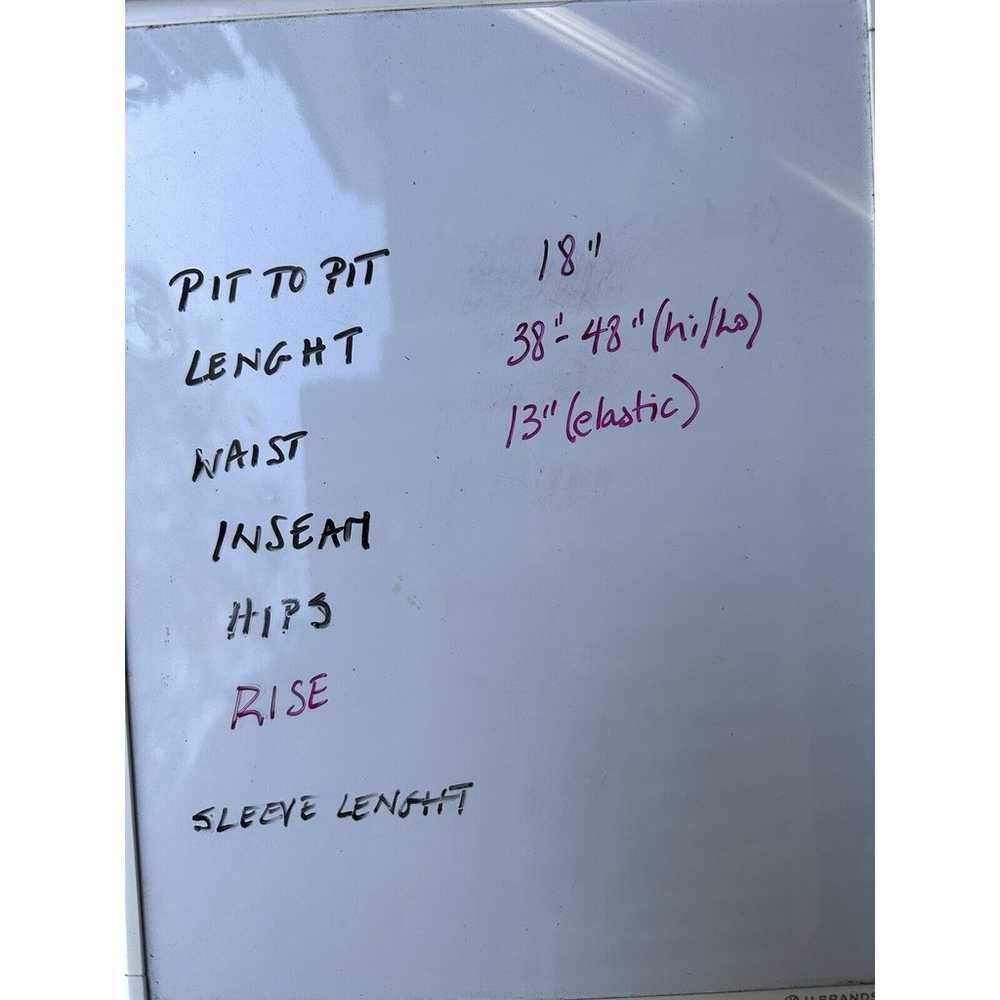 PIT TO PIT 18"
LENGHT 38"-48" (hi/lo)
WAIST 13" (elastic)
INSEAM
HIPS
RISE
SLEEVE LENGHT
U BRANDS